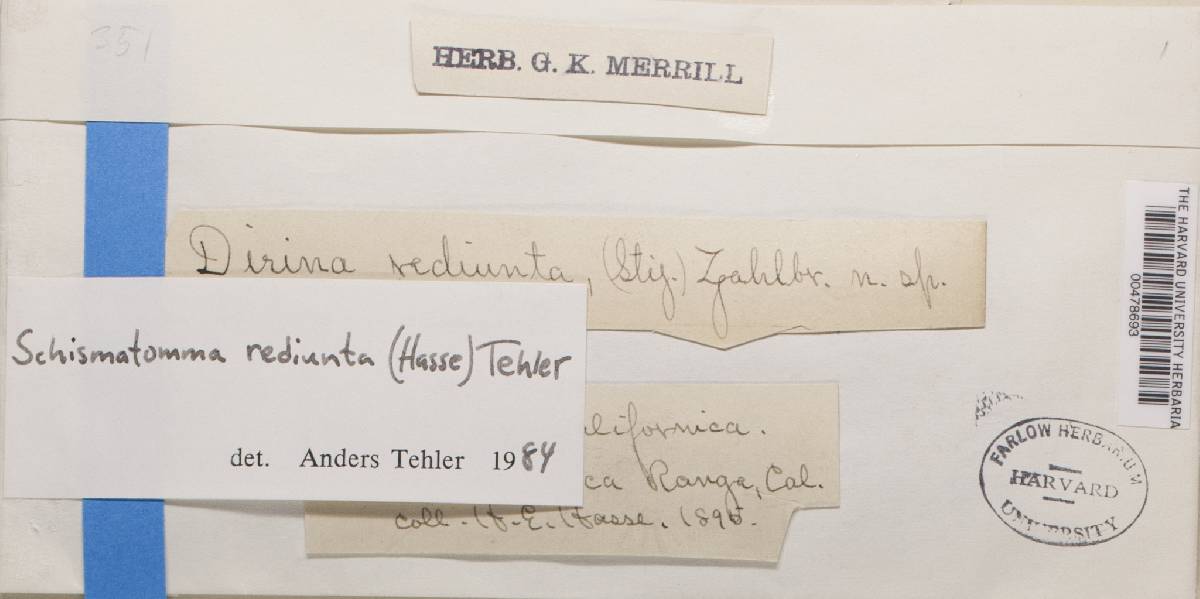 351
HERB. G. K. MERRILL
Dirina rediunta, (Stiz.) Zahlbr. n. sp.
Schismatomma rediunta (Hasse) Tehler
det. Anders Tehler 1984
lifornica.
ca Range, Cal.
coll. H. E. Hasse. 1895.
THE HARVARD UNIVERSITY HERBARIA
00478693
FARLOW HERBARIUM
HARVARD
UNIVERSITY